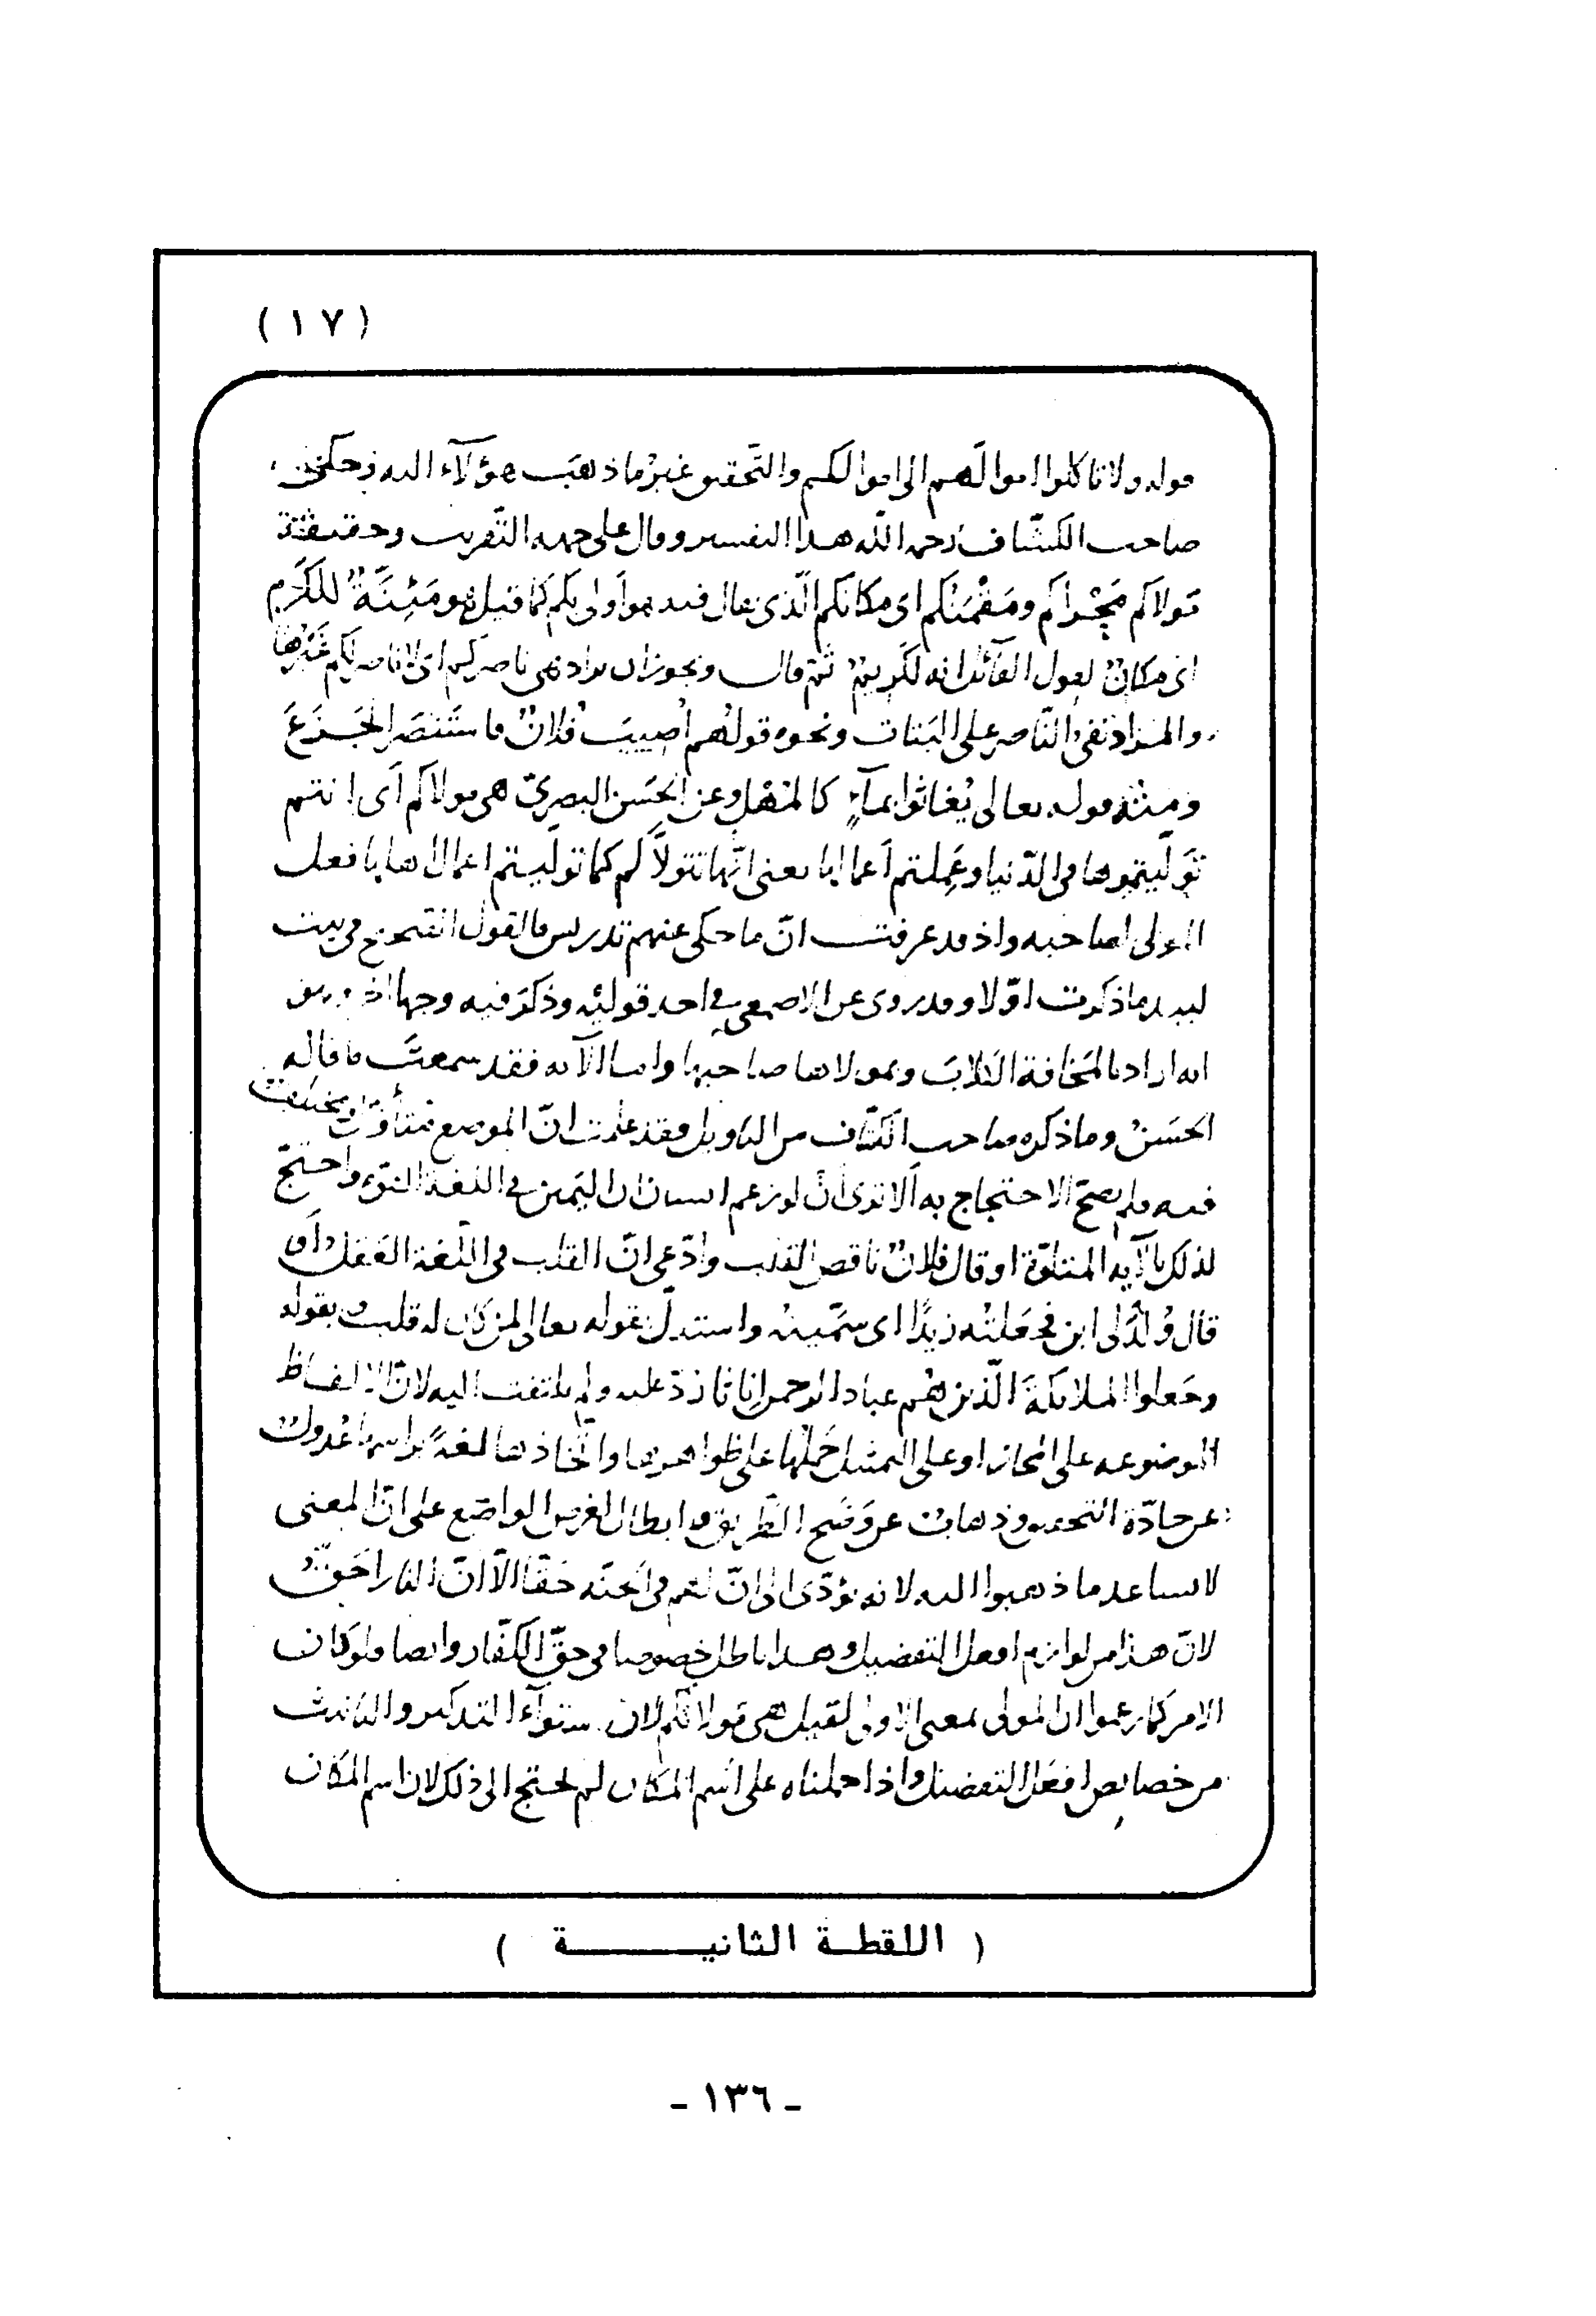 (١٧)
قوله ولا تاكلوا اموالَهم الى اموالكم والتَّحقيق غيرُ ما ذهبَ هؤلاء اليه فحكى
صاحب الكشّاف رحمه اللّه هذا التفسير وقال على جهه التّقريب وحقيقة
مَولاكم مَحْراكم ومَقْمَنكم اى مكانكم الّذى يقال فيه هو اَولى بكم كما قيل هو مَئِنَّةٌ للكَرَم
اى مكانٌ لقول القآئل انه لكَريمٌ ثم قال ويجوز ان يراد هى ناصركم اى لا ناصر لكم غَيْرها
والمراد نفى النّاصر على البَتات ونحوه قولُهم اُصيبَ فلانٌ فاستَنصَر الجَزعَ
ومنه قوله تعالى يُغاثوا بمآءٍ كالمُهْل وعن الحسَن البصرىّ هى مولاكم اَى انتم
تَولّيتموها فى الدّنيا وعَمِلتم اَعمالها يعنى انّها تتولاّكم كما تولّيتم اعمال اهلها فعل
المولى لصاحبه واذ قد عرفت انّ ما حكى عنهم فالقول الصحيح فى بيت
لبيد ما ذكرت اوّلا وقد روى عن الاصمعى فى احد قوليْه وذكرَ فيه وجها اخر وهو
انه اراد بالمَخافة الكلابَ وبمولاها صاحبها واما الآيه فقد سمعتَ ما قاله
الحسَنُ وما ذكره صاحب الكشّاف من التاويل وقد علمت انّ الموضع مختلَفٌ
فيه فلم يصحّ الاحتجاج به اَلا ترى انْ لو زعم انسان ان اليَمين فى اللغة القوة واحتجّ
لذلك بالآيه المتلوّة او قال فلانٌ ناقص القلب وادّعى انّ القلب فى اللّغة العَقل او
قال وُلدَ لى ابن فجعَلتُه زيدًا اى سمَّيته واستدلّ بقوله تعالى لمن كان له قلب وبقوله
وجعلوا الملايكةَ الّذين هُم عباد الرحمن اناثا رُدّ عليه ولم يلتفت اليه لانّ الالفاظ
الموضوعه على المجاز او على التمثيل حَمْلُها على ظواهرها واتّخاذها لغةً براسها عُدولٌ
عن جادّة التحديد وذهابٌ عن وضَح الطّريق وابطال الغرض الواضع على انّ المعنى
لا يساعد ما ذهبوا اليه لانه يؤدّى الى انّ لهم فى الجنّه حَقّا الاّ انّ النار اَحَقّ
لانّ هذا من لوازم افعل التفضيل وهذا باطل خصوصا فى حقّ الكفّار وايضا فلو كان
الامر كما زعموا ان المولى بمعنى الاولى لقيل هى مَولاتكم لان ستوآء التذكير والتانيث
من خصايص افعَل التفضيل واذا حملناه على اسم المكان لم نحتج الى ذلك لان اسم المكان
( اللقطة الثانيـــــــة )
- ١٣٦ -